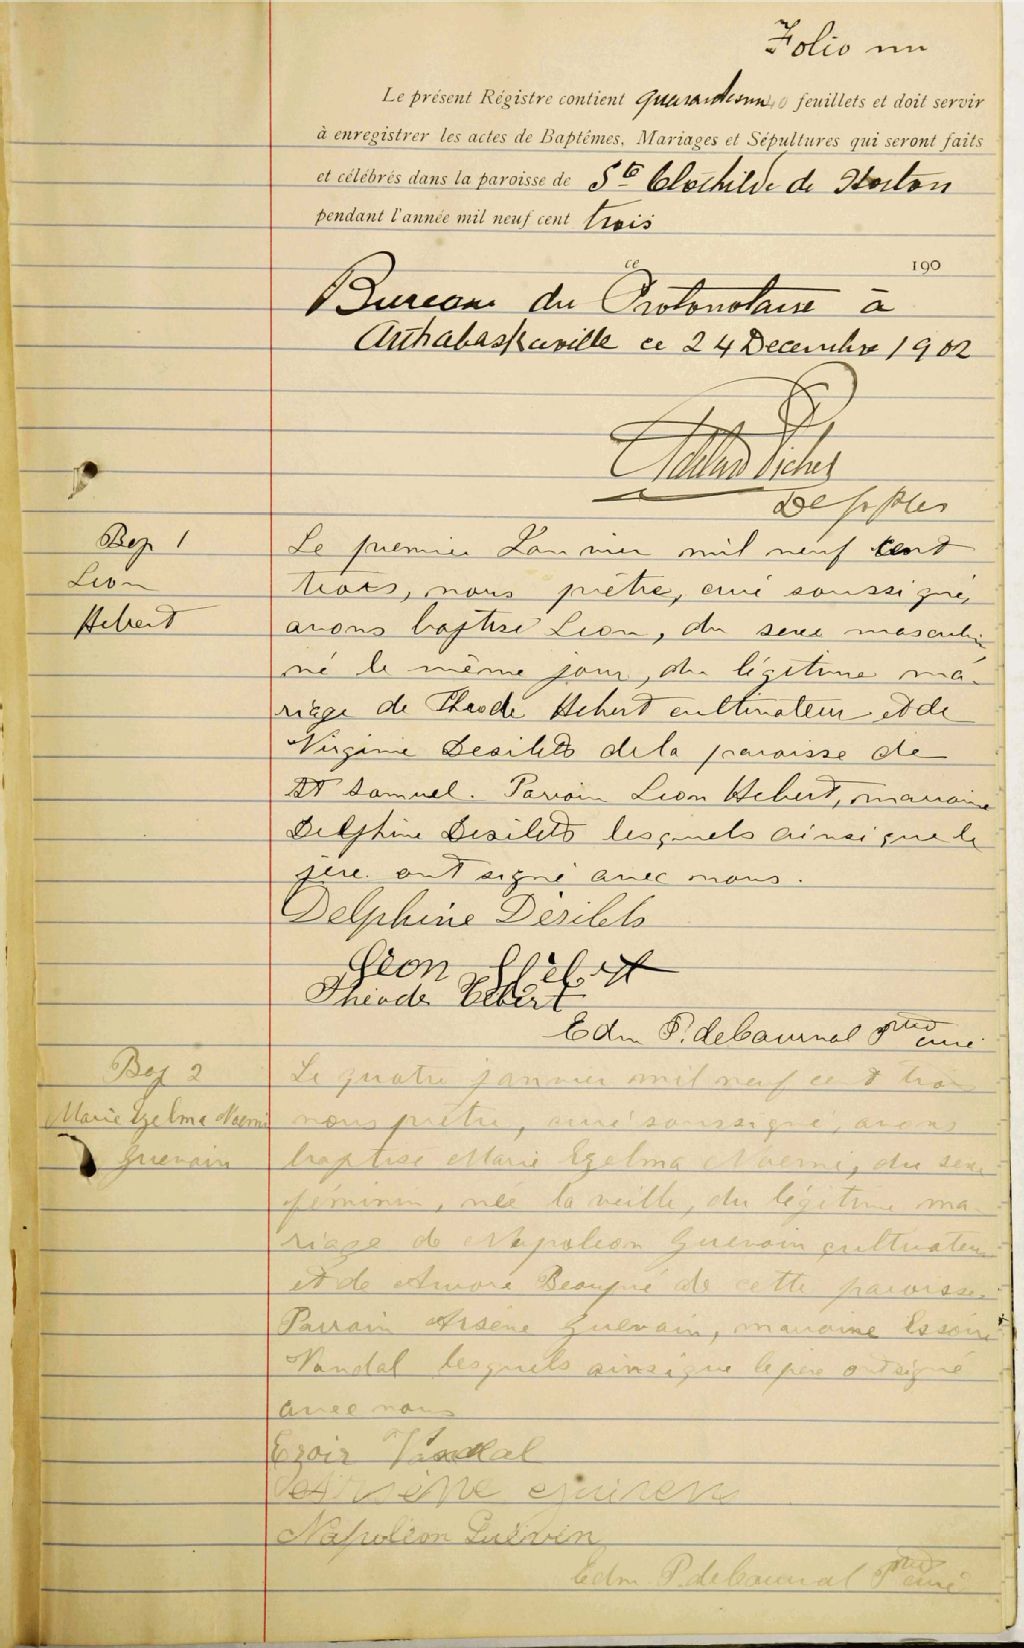 Folio un
Le présent Régistre contient quarante 40 feuillets et doit servir
à enregistrer les actes de Baptêmes, Mariages et Sépultures qui seront faits
et célébrés dans la paroisse de Ste Clothilde de Horton
pendant l'année mil neuf cent trois
ce 190
Bureau du Protonotaire à
Arthabaskaville ce 24 Decembre 1902
Bap 1
Leon
Hebert
Le premier Janvier mil neuf cent
trois, nous prêtre, curé soussigné,
avons baptisé Leon, du sexe masculin
né le même jour, du légitime ma-
riage de Theode Hebert cultivateur et de
Virginie Desilets de la paroisse de
St Samuel. Parrain Leon Hebert, marraine
Delphine Desilets lesquels ainsi que le
père ont signé avec nous.
Delphine Désilets
Léon Hébert
Théode Hébert
Edm P. de Courval Ptre curé
Bap 2
Marie Ezelma Noemi
Guevain
Le quatre janvier mil neuf cent trois
nous prêtre, curé soussigné, avons
baptisé Marie Ezelma Noemi, du sexe
féminin, née la veille, du légitime ma-
riage de Napoleon Guevain cultivateur
et de Aurore Beaupré de cette paroisse.
Parrain Arsène Guevain, marraine
Vandal lesquels ainsi que le père ont signé
avec nous
Ezoir Vandal
Arsène
Napoléon Guévin
Edm P. de Courval Ptre curé